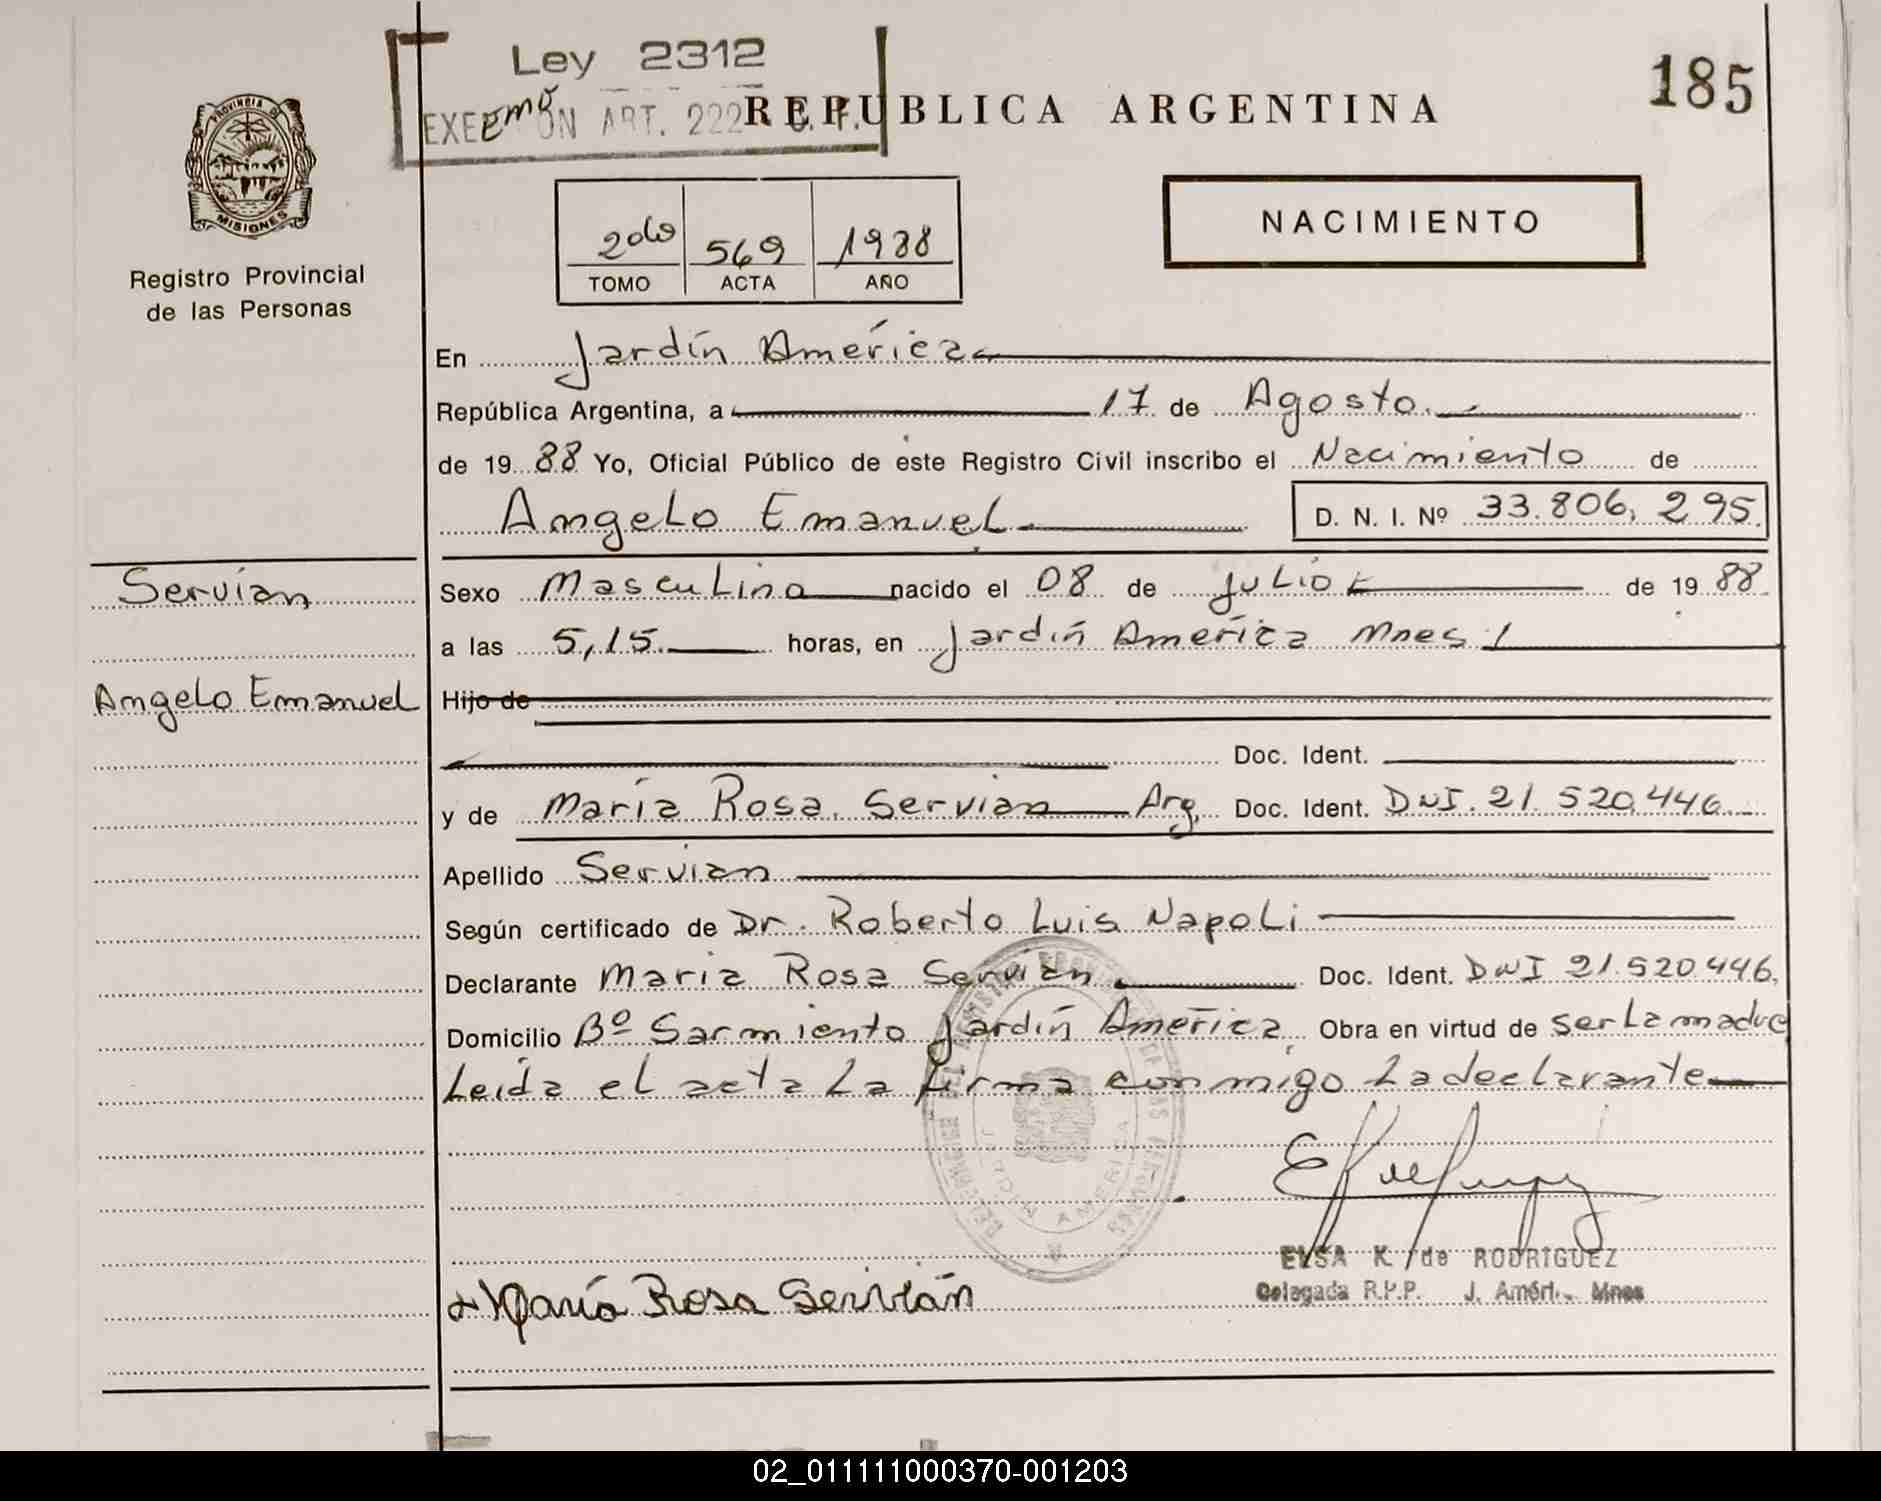 Ley 2312
EXEEmoON ART. 222 C. F.
REPUBLICA ARGENTINA
185
PROVINCIA DE
MISIONES
Registro Provincial
de las Personas
2do 569 1988
TOMO ACTA AÑO
NACIMIENTO
En Jardín América
República Argentina, a 17 de Agosto.
de 19 88 Yo, Oficial Público de este Registro Civil inscribo el Nacimiento de
Angelo Emanuel D. N. I. Nº 33.806.295
Servian
Sexo Masculino nacido el 08 de Julio de 19 88
a las 5,15. horas, en Jardín América Mnes.
Angelo Emanuel
Hijo de
Doc. Ident.
y de María Rosa Servian Arg. Doc. Ident. DNI. 21.520.446
Apellido Servian
Según certificado de Dr. Roberto Luis Napoli
Declarante Maria Rosa Servian Doc. Ident. DNI 21.520.446.
Domicilio Bº Sarmiento Jardín América Obra en virtud de ser la madre
Leida el acta La firma conmigo La declarante
JARDIN AMERICA
ELSA K. de RODRIGUEZ
Delegada R.P.P. J. Améri. Mnes
María Rosa Servián
02_011111000370-001203